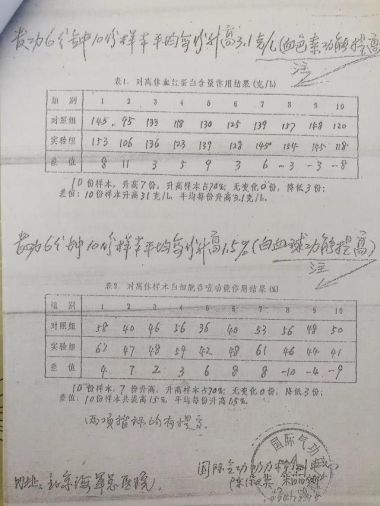 发功6分钟10份样本平均每份升高3.1克/L(血色素功能提高)
注
表1. 对离体血红蛋白含量作用结果(克/L)
组别 1 2 3 4 5 6 7 8 9 10
对照组 145 95 133 118 130 125 139 127 148 120
实验组 153 106 136 123 139 128 145 124 145 118
差值 8 11 3 5 9 3 6 -3 -3 -8
10份样本,升高7份,升高样本占70%;无变化0份,降低3份;
差值:10份样本升高31克/L,平均每份升高3.1克/L。
发功6分钟10份样本平均每份升高1.5%(白血球功能提高)
注
表2. 对离体样本白细胞吞噬功能作用结果(%)
组别 1 2 3 4 5 6 7 8 9 10
对照组 58 40 46 56 36 40 53 56 48 50
实验组 62 47 48 59 42 48 61 46 44 41
差值 4 7 2 3 6 8 8 -10 -4 -9
10份样本,7份升高,升高样本占70%;无变化0份,降低3份;
差值:10份样本共提高15%,平均每份升高1.5%。
两项指标均有提高
国际气功
地址:北京海军总医院